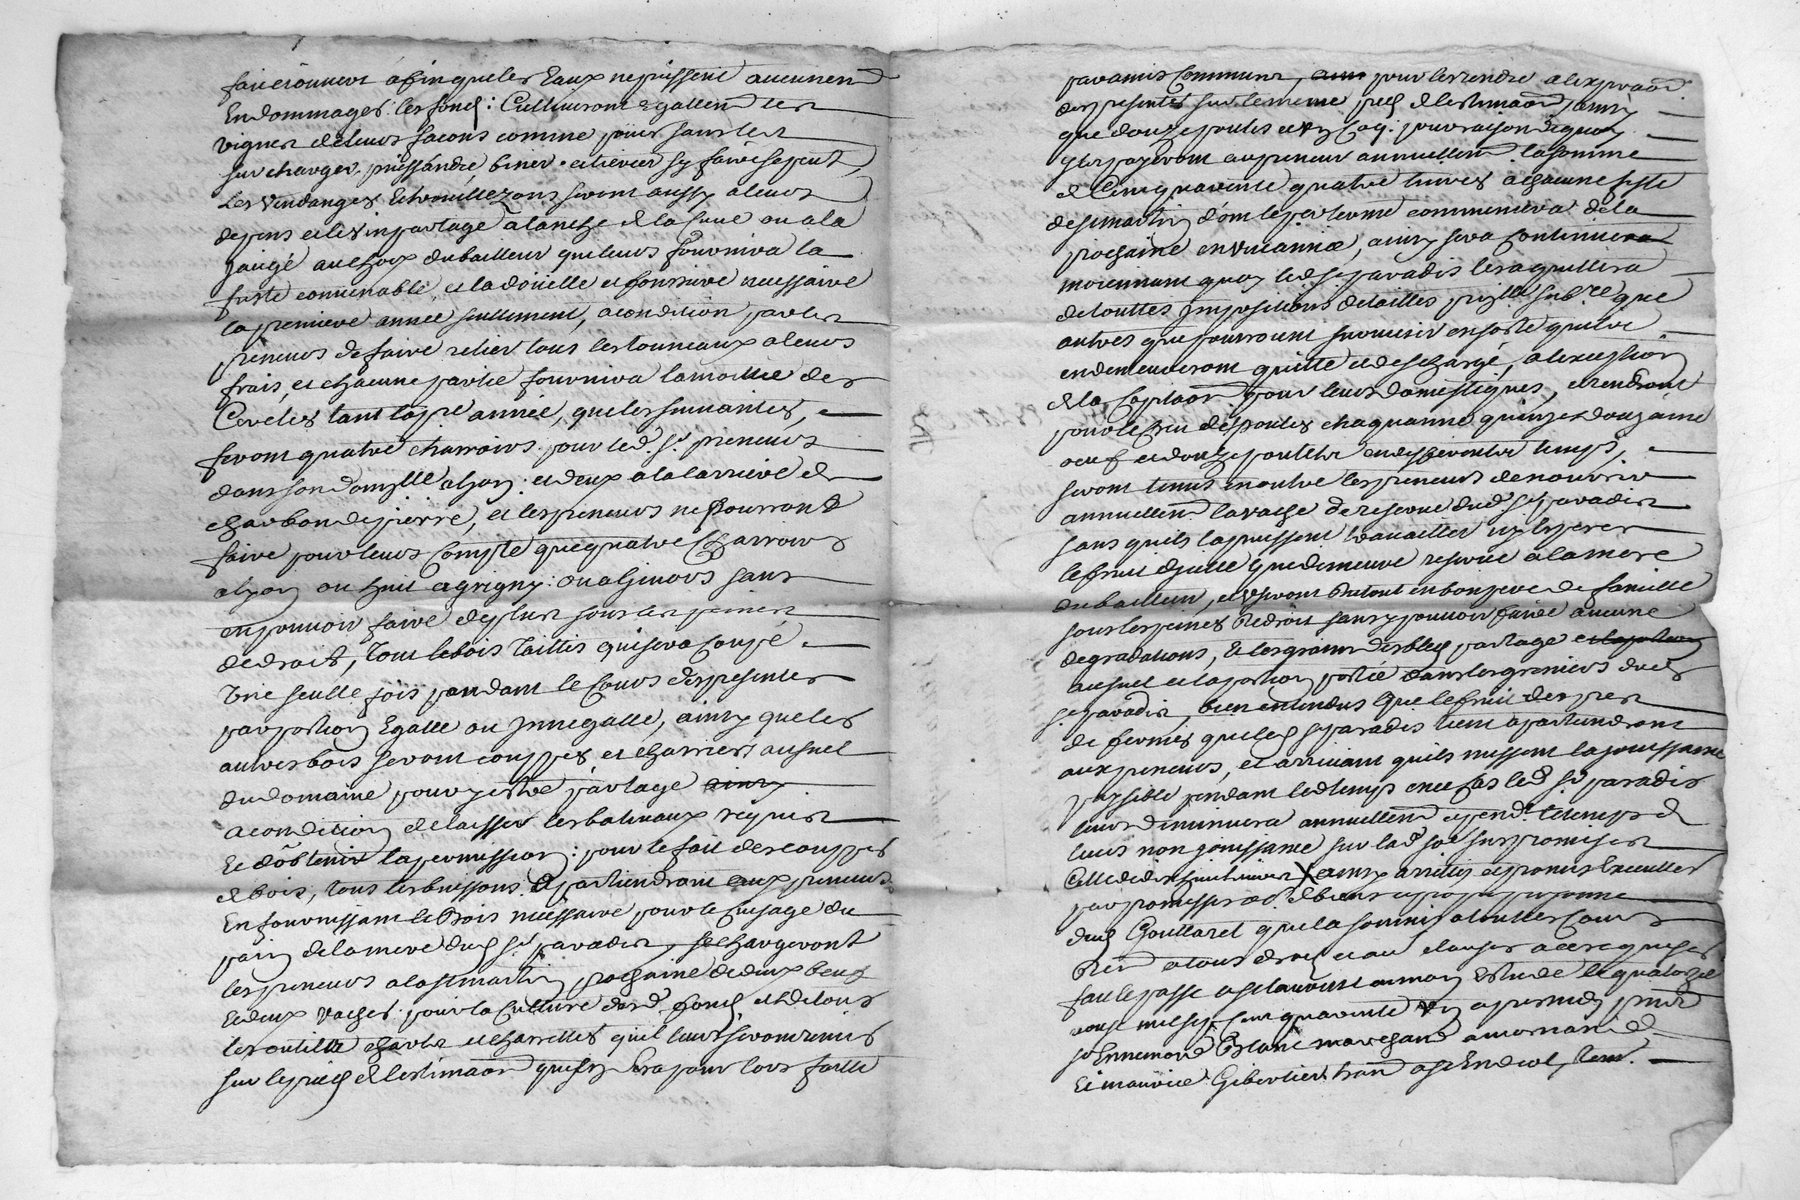 afin que les Eaux ne puissent aucunem
Endommager les fonds: Cultiveront Egallem les
vignes de leurs facons comme sans les
sur charger, biner et tiercer sy faire se peut
Les Vendanges seront aussy a leurs
depens et le vin partagé a lanche de la Cuve ou a la
jaugé au choix du bailleur qui leurs fournira la
fuste convenable, et la doüelle et fonsure necessaire
la premiere année seullement, a condition par les
preneurs de faire relier tous les tonneaux a leurs
frais, et chacune partie fournira la moitié des
Cercles tant la pre année, que les suivantes,
feront quatre charrois pour led. Sr. preneurs
dans son domille a lyon: et deux a la carriere de
charbon de pierre, et les preneurs ne pourront
faire pour leurs Compte que quatre Charrois
a lyon ou huit a grigny: ou a givors sans
en pouvoir faire de plus sous les peines
de droit, Tout le bois taillis qui sera Coupé
Une seulle fois pandant le Cours des presentes
par portion Egalle ou Innegalle, ainsy que les
autres bois seront couppes et charriers au suel
du domaine pour y estre partage ainsy
a condition de laisser les baliveaux requis
Et dobtenir la permission: pour le fait des coupes
de bois, tous les buissons apartiendront aux preneurs
En fournissant le Bois necessaire pour le Cuisage du
pain de la mere dud Sr. paradis, se chargeront
les preneurs a la st martin prochaine de deux boeufs
et deux vaches pour la Culture desd. fonds et de tous
les outils charles et charrettes qui leurs seront remis
sur le pied de lestimaon qui sera pour lors faitte
par amis Communs, pour les rendre a lexpiraon
des presentes sur le meme pied de lestimaon, ainsy
que douze poules et un Coq. pour raison de quoy
ils payeront au preneur annuellem la somme
de Cinquante quatre livres a chacune feste
de st martin dont le per terme commencera de la
prochaine en une année, ainsy sera Continuer
moiennant quoy led. Sr. paradis les aquittera
de touttes Impositions de tailles que
autres que pourroient survenir en sorte quils
en demeureront quitte et deschargé, a lexception
de la Capitaon pour leurs domestiques, et rendront
pour le de poules chaque année quinze douzaine
oeuf et douze poullets en differentes temps,
seront tenus en outre les preneurs de nourrir
annuellem la vache de reserve dud Sr paradis
sans quils la puissent travailler
le fruit dicelle que demeure reservé a la mere
du bailleur, et useront du tout en bon pere de famille
sous les peines de droit sans y pouvoir faire aucune
degradations, et les grains des bleds partage
au suel et la portion portée dans les greniers dud
Sr paradis, bien entendus que le fruit des pres
de fermes que led Sr paradis tient apartiendront
aux preneurs, et arrivant quils nussent la jouissance
paysible pendant led temps en ce cas led Sr paradis
leurs diminuera annuellem et pendt le temps de
leurs non jouissance sur lad. promise
Celle de dix huit livres X ainsy arrettés et promis Executter
par promisses de biens et propre personne
dud Goullaret que la soumis a toutes Cours
a tous droits et au clauses a ce requises
fait et passé a st laurent en mon Estude le quatorze
aout mil sept cent quarante six a pres midy present
Sr Ennemond Blanc marchand a mornand
Et maurice Giberties a st Endeol, tem.